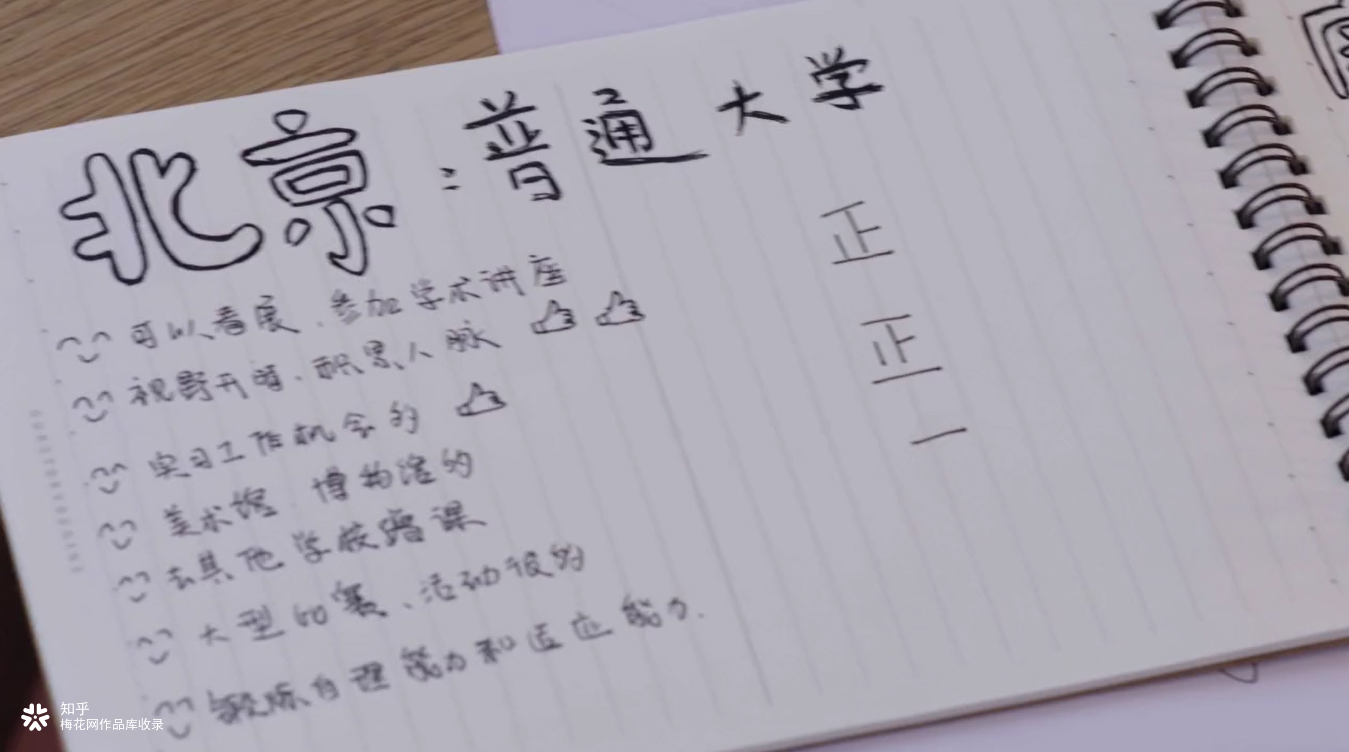 北京:普通大学
可以看展、参加学术讲座
视野开阔、积累人脉
实习工作机会多
美术馆、博物馆多
去其他学校蹭课
大型比赛、活动很多
锻炼自理能力和适应能力.
正
正
一
知乎
梅花网作品库收录